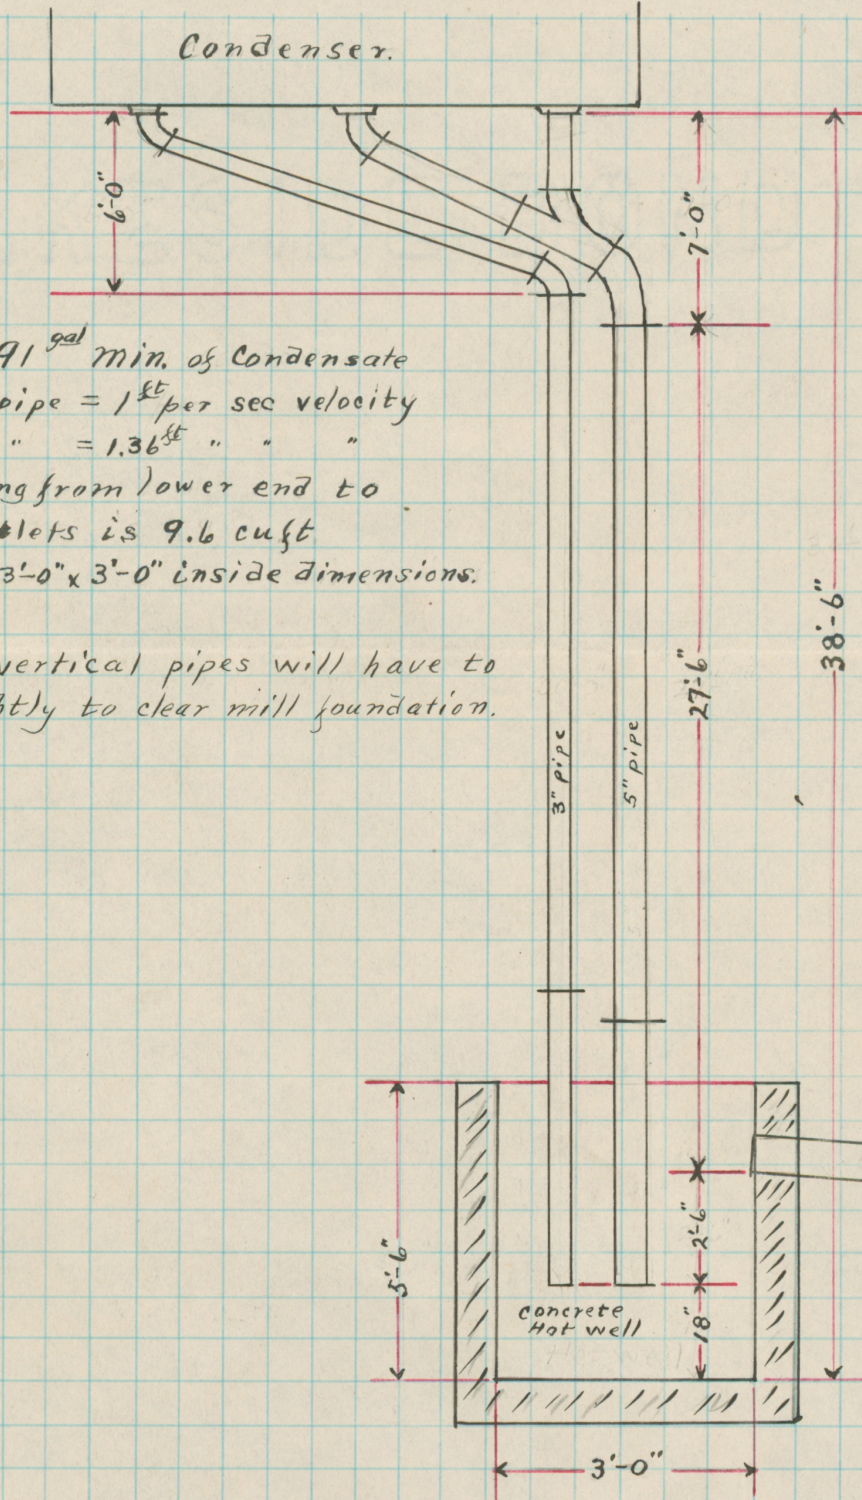 Condenser.
6'-0"
7'-0"
91 gal min. of Condensate
pipe = 1 ft per sec velocity
" = 1.36 ft " " "
ng from lower end to
tlets is 9.6 cu ft
3'-0" x 3'-0" inside dimensions.
38'-6"
vertical pipes will have to
htly to clear mill foundation.
27'-6"
3" pipe
5" pipe
5'-6"
2'-6"
concrete
Hot well
18"
3'-0"